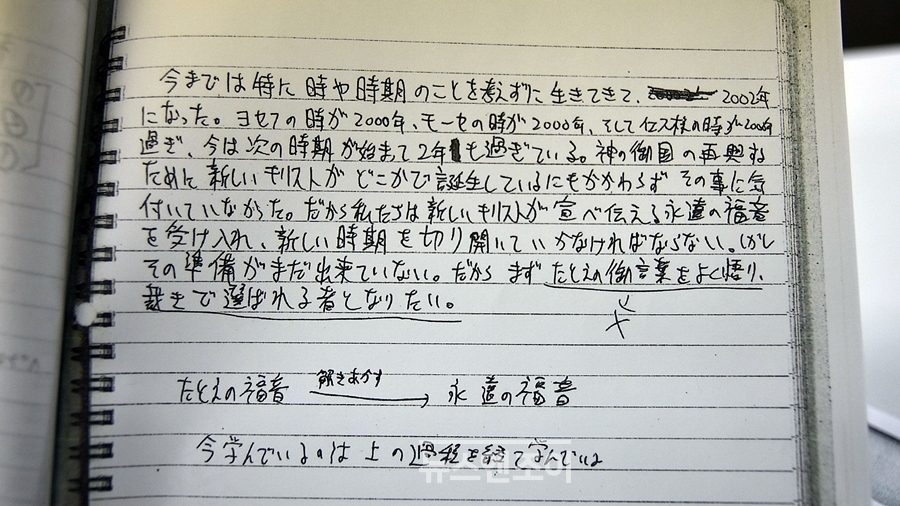 今までは特に時や時期のことを考えずに生きてきて、2002年
になった。ヨセフの時が2000年、モーセの時が2000年、そしてイエス様の時が2000年
過ぎ、今は次の時期が始まて2年も過ぎている。神の御国の再興する
ために新しいキリストがどこかで誕生しているにもかかわらずその事に気
付いていなかった。だから私たちは新しいキリストが宣べ伝える永遠の福音
を受け入れ、新しい時期を切り開いていかなければならない。しかし
その準備がまだ出来ていない。だからまずたとえの御言葉をよく悟り、
裁きで選ばれる者となりたい。
解きあかす
たとえの福音 → 永遠の福音
今学んでいるのは上の過程を経て学んでいる
뉴스앤조이